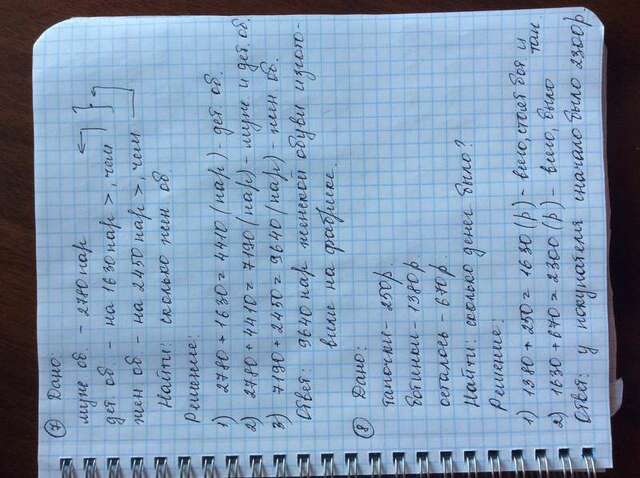 7 Дано:
муж об. - 2780 пар
дет. об. - на 1630 пар >, чем
жен об - на 2450 пар >, чем
Найти: сколько жен об
Решение:
1) 2780 + 1630 = 4410 (пар) - дет. об.
2) 2780 + 4410 = 7190 (пар) - муж. и дет. об.
3) 7190 + 2450 = 9640 (пар) - жен об.
Ответ: 9640 пар женской обуви изгото-
вили на фабрике.
8 Дано:
тапочки - 250 р.
ботинки - 1380 р
осталось - 670 р.
Найти: сколько денег было?
Решение:
1) 1380 + 250 = 1630 (р) - всего, стоят бот и
тап
2) 1630 + 670 = 2300 (р) - всего, было
Ответ: у покупателя сначало было 2300 р.